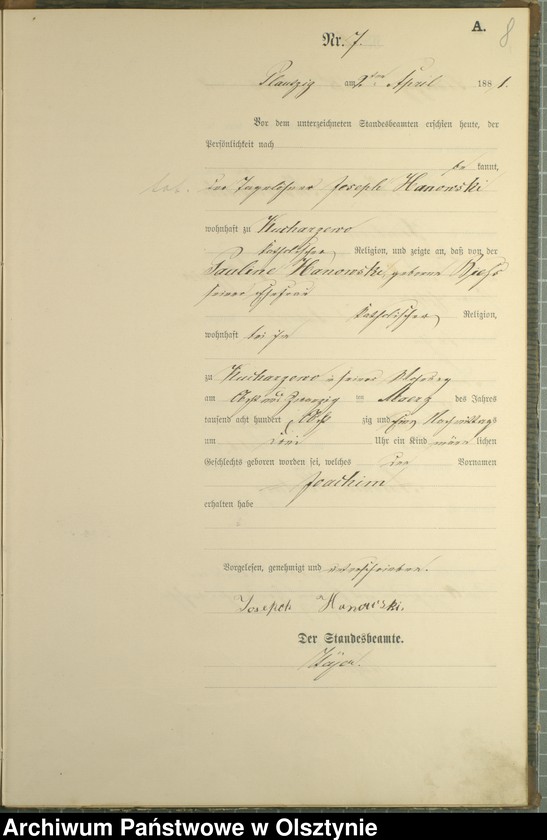 A.
8
Nr. 7.
Plautzig am 2ten April 1881.
Vor dem unterzeichneten Standesbeamten erschien heute, der
Persönlichkeit nach
be kannt,
der Tagelöhner Joseph Hanowski
wohnhaft zu Kucharzewo
katholischer Religion, und zeigte an, daß von der
Pauline Hanowski, geborene
seiner Ehefrau
katholischer Religion,
wohnhaft bei ihm
zu Kucharzewo in seiner Wohnung
am Acht und zwanzig ten Maerz des Jahres
tausend acht hundert Acht zig und Eins Nachmittags
um drei Uhr ein Kind männ lichen
Geschlechts geboren worden sei, welches den Vornamen
Joachim
erhalten habe
Vorgelesen, genehmigt und unterschrieben.
Joseph Hanowski.
Der Standesbeamte.
Archiwum Państwowe w Olsztynie